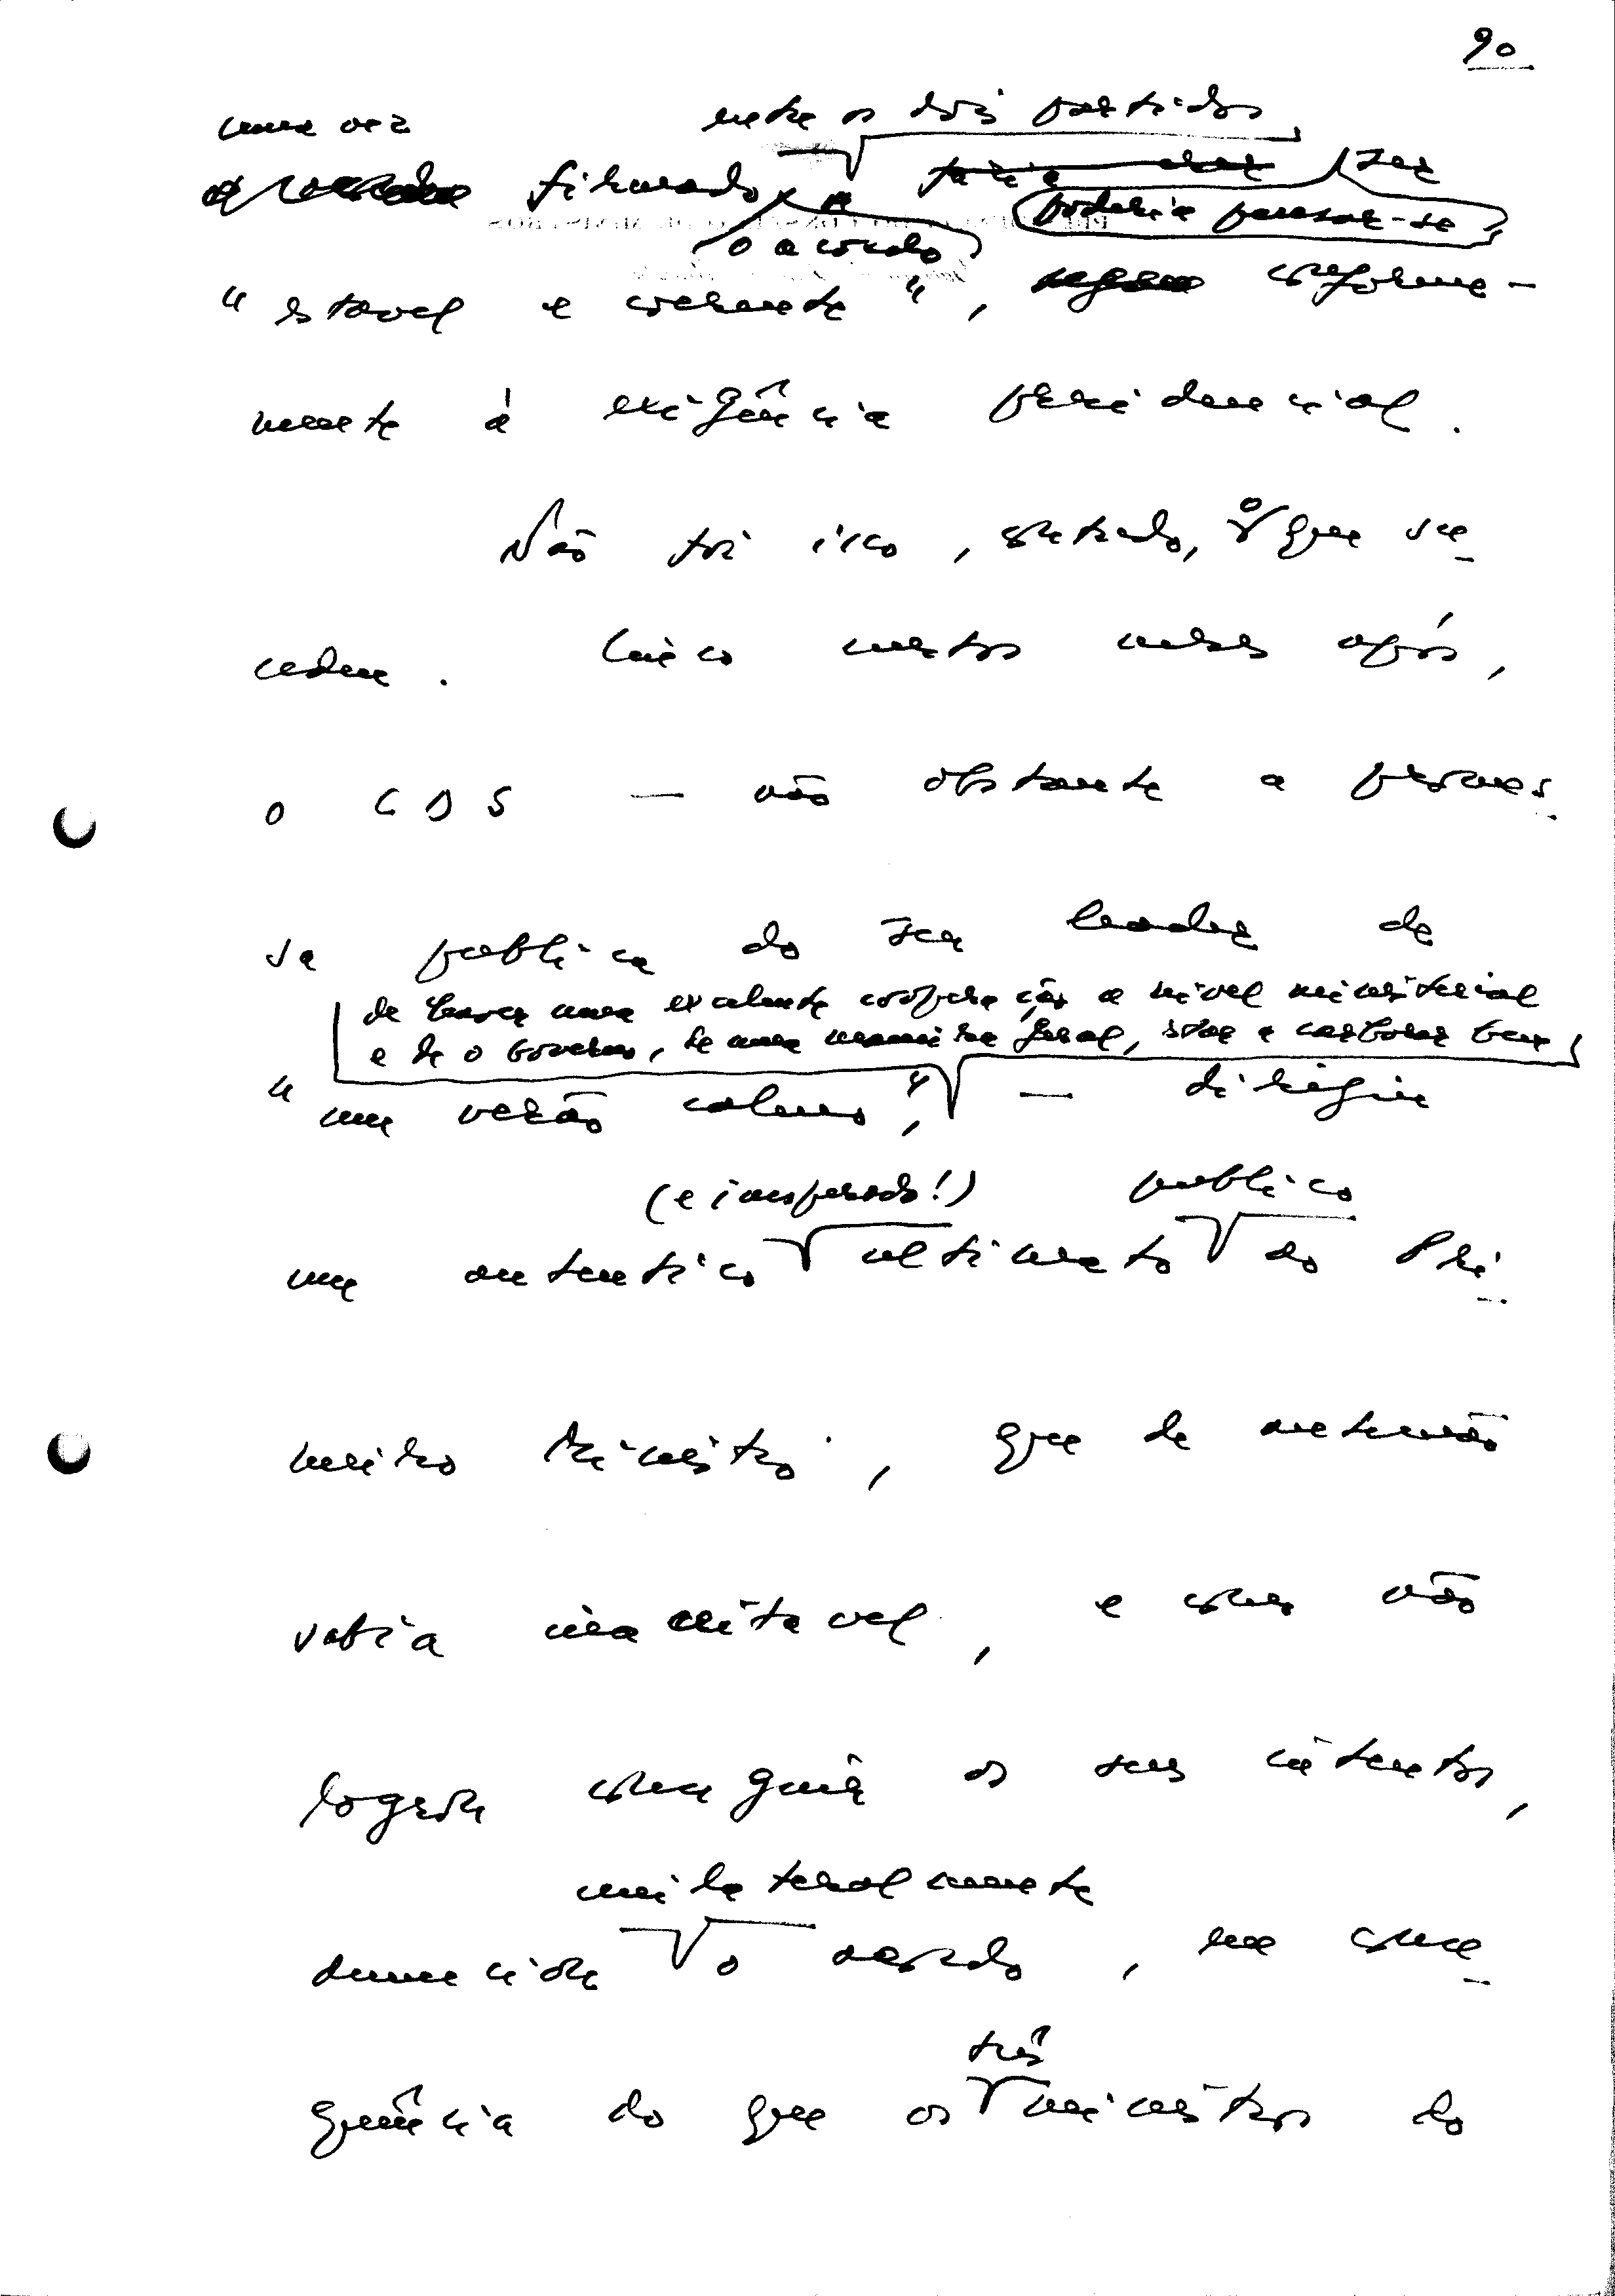 90
uma vez entre os dois partidos
firmado, ser
o acordo poderia pensar-se
"estavel e coerente", conforme-
mente à exigência presidencial.
Não foi isso, contudo, o que su-
cedeu. Cinco curtos meses após,
o CDS — não obstante a promes-
sa publica do seu leader de
de haver uma excelente cooperação a nivel ministerial
e de o Governo, de uma maneira geral, estar a
"um verão calmo", — dirigiu
(e inesperado!) publico
um autentico ultimato ao Pri-
meiro Ministro, que de antemão
sabia inaceitavel, e como não
lograra conseguir os seus intentos,
unilateralmente
denunciou o acordo, na conse-
três
quência do que os ministros do